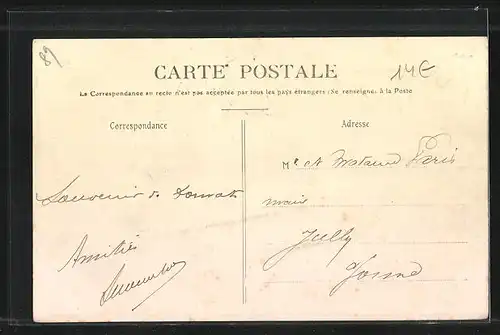 89
CARTE POSTALE
14€
La Correspondance au recto n'est pas acceptée par tous les pays étrangers (Se renseigner à la Poste
Correspondance
Adresse
Souvenir de
Amitiés
maire
Jully
Yonne